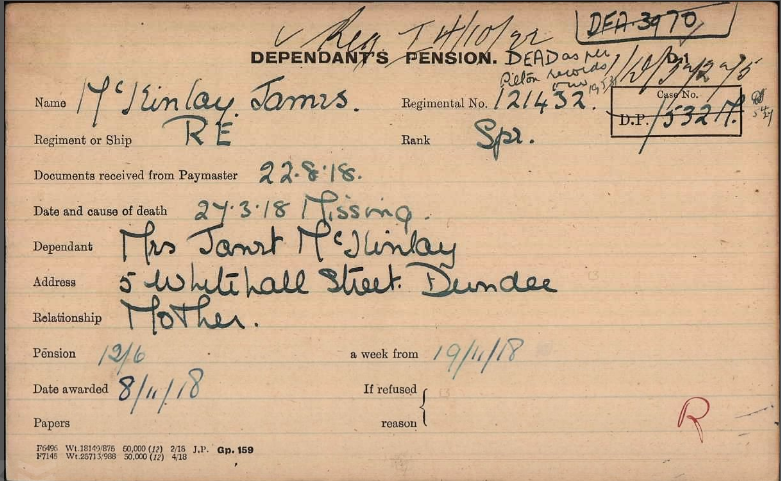 Reg I 4/10/22
DEA 3970
DEPENDANT'S PENSION.
DEAD as per
records
D.1
Name McKinlay James.
Regimental No. 121432.
Case No.
D.P. 1/5327M.
Regiment or Ship RE
Rank Spr.
Documents received from Paymaster 22.8.18.
Date and cause of death 27.3.18 Missing.
Dependant Mrs Janet McKinlay
Address 5 Whitehall Street. Dundee
Relationship Mother.
Pension 12/6 a week from 19/11/18
Date awarded 8/11/18 If refused
Papers reason
R
F6496 Wt.18149/876 60,000 (12) 2/18 J.P. Gp. 159
F7148 Wt.25713/988 50,000 (12) 4/18